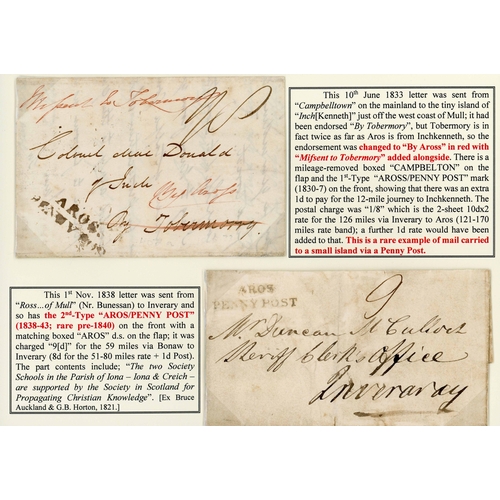 Missent to Tobermory
Colonel Mac Donald
of Inch
By Aross
By Tobermory
AROS
PENNY POST
This 10th June 1833 letter was sent from
"Campbelltown" on the mainland to the tiny island of
"Inch[Kenneth]" just off the west coast of Mull; it
had been endorsed "By Tobermory", but Tobermory is
in fact twice as far as Aros is from Inchkenneth, so the
endorsement was changed to "By Aross" in red with
"Mifsent to Tobermory" added alongside. There is a
mileage-removed boxed "CAMPBELTON" on the
flap and the 1st-Type "AROSS/PENNY POST" mark
(1830-7) on the front, showing that there was an extra
1d to pay for the 12-mile journey to Inchkenneth. The
postal charge was "1/8" which is the 2-sheet 10dx2
rate for the 126 miles via Inverary to Aros (121-170
miles rate band); a further 1d rate would have been
added to that. This is a rare example of mail carried to
a small island via a Penny Post.
This 1st Nov. 1838 letter was sent from
"Ross...of Mull" (Nr. Bunessan) to Inverary and
so has the 2nd-Type "AROS/PENNY POST"
(1838-43; rare pre-1840) on the front with a
matching boxed "AROS" d.s. on the flap; it was
charged "9[d]" for the 59 miles via Bonaw to
Inverary (8d for the 51-80 miles rate + 1d Post).
The part contents include; "The two Society
Schools in the Parish of Iona – Iona & Creich –
are supported by the Society in Scotland for
Propagating Christian Knowledge". [Ex Bruce
Auckland & G.B. Horton, 1821.]
AROS
PENNY POST
9
Mr Duncan McCulloch
Sheriff Clerks Office
Inveraray